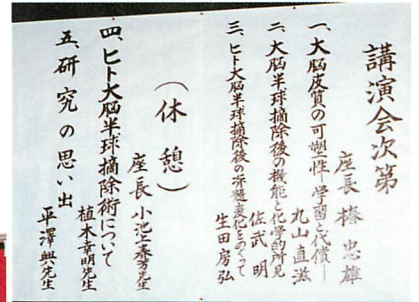 講演会次第
座長 椿 忠雄
一、大脳皮質の可塑性 ―学習と代償―
丸山 直滋
二、大脳半球摘除後の機能と化学的所見
佐武 明
三、ヒト大脳半球摘除後の形態変化をめぐって
生田 房弘
(休憩)
座長 小池上春芳先生
四、ヒト大脳半球摘除術について
植木幸明先生
五、研究の思い出
平澤興先生